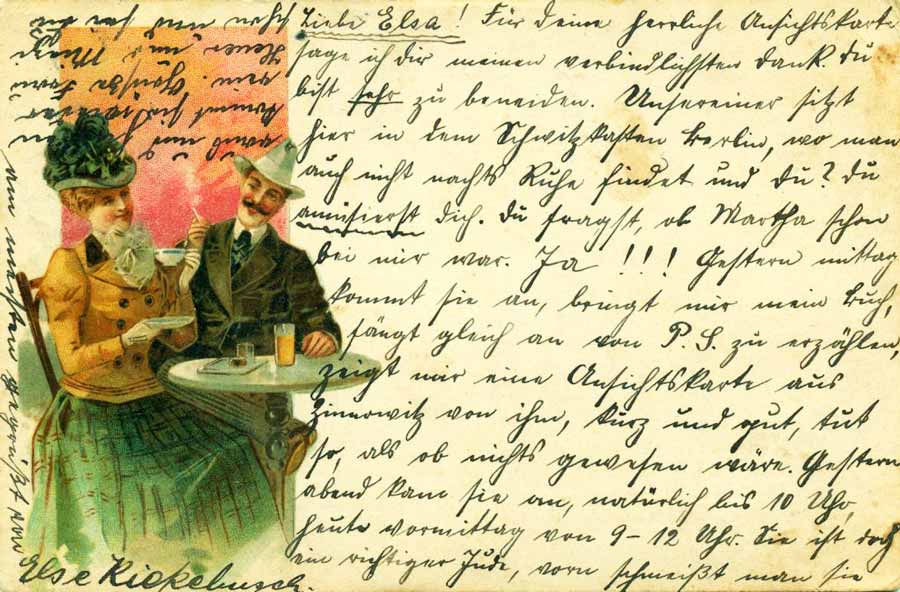 Liebe Elsa! Für deine herrliche Ansichtskarte
sage ich dir meinen verbindlichsten Dank. Du
bist sehr zu beneiden. Unsereiner sitzt
hier in dem Schwitzkasten Berlin, wo man
auch nicht nachts Ruhe findet und du? Du
amüsierst dich. Du fragst, ob Martha schon
bei mir war. Ja!!! Gestern mittag
kommt sie an, bringt mir mein Buch,
fängt gleich an von P. S. zu erzählen,
zeigt mir eine Ansichtskarte aus
Zinnowitz von ihm, kurz und gut, tut
so, als ob nichts gewesen wäre. Gestern
abend kam sie an, natürlich bis 10 Uhr,
heute vormittag von 9-12 Uhr. Sie ist doch
ein richtiger Jude, vorn schmeißt man sie
raus und
kommt sie wieder
rein.
und
Else Kiekebusch.